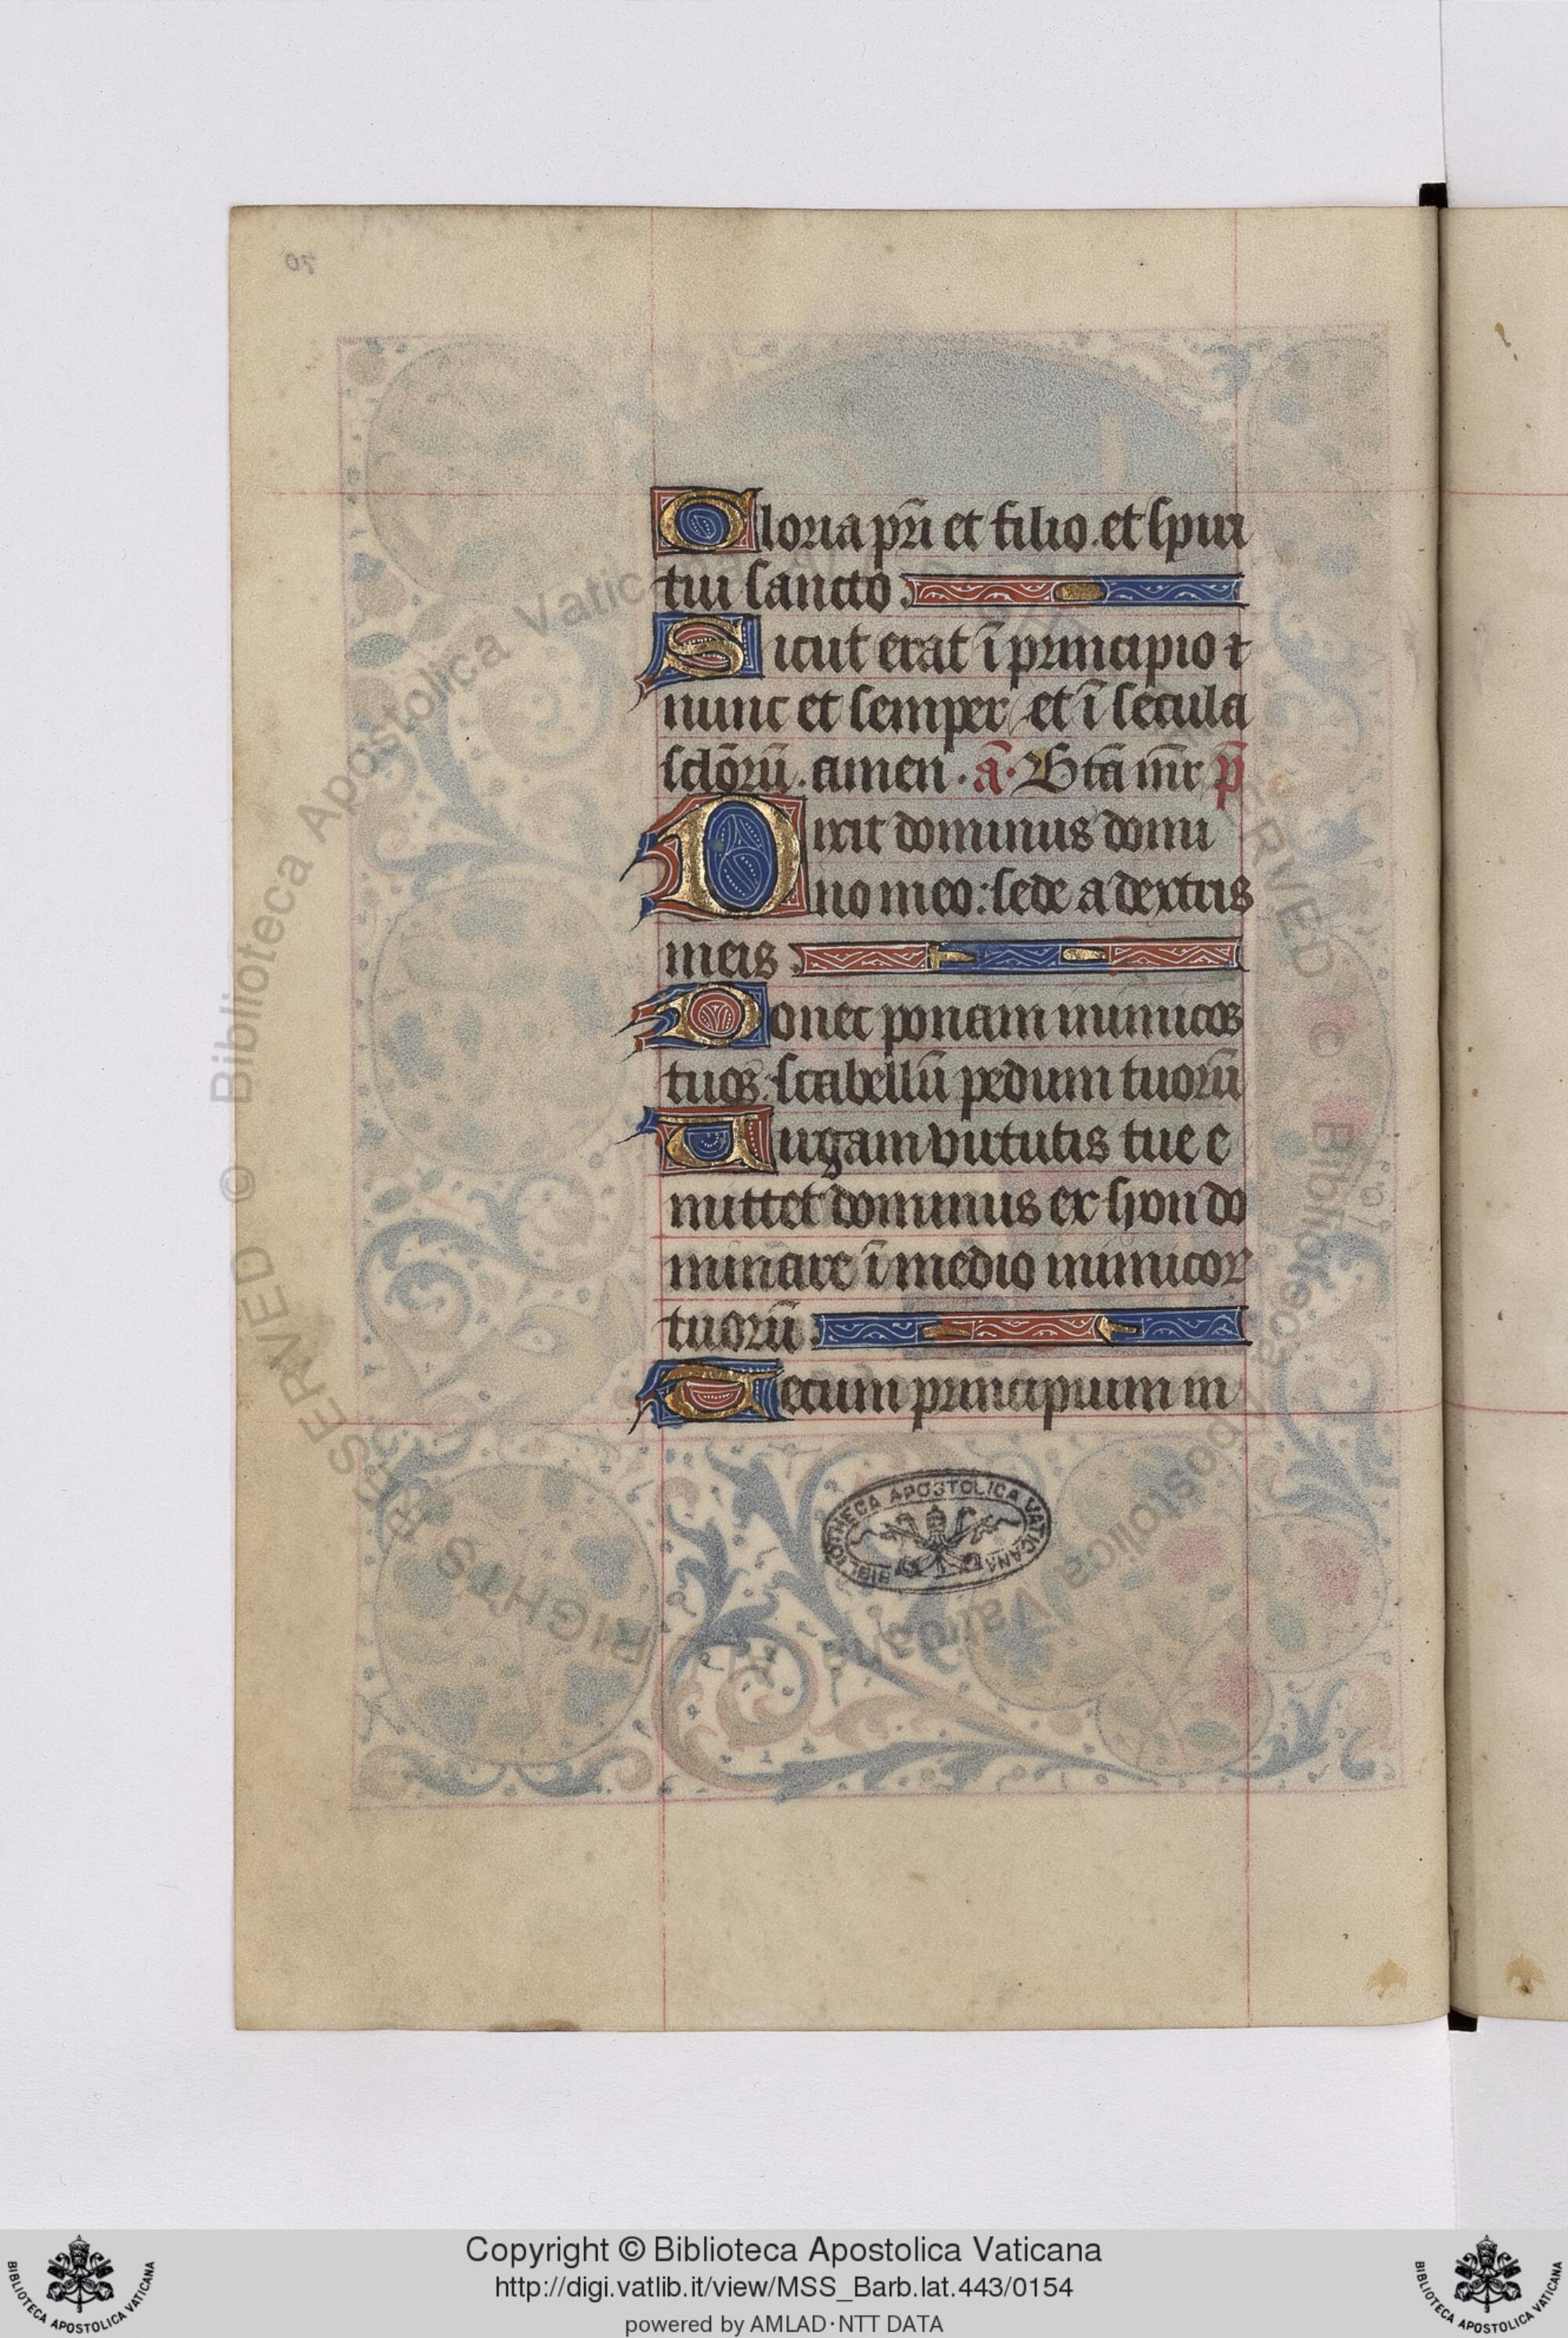 70
Gloria pr̄i et filio. et spiri
tui sancto.
Sicut erat ī principio ⁊
nunc et semper / et ī secula
sclōrū. amen. ā. Btā mr̄ p̄
Dixit dominus domi
no meo: sede a dextris
meis.
Donec ponam inimicos
tuos: scabellū pedum tuorū
Uirgam virtutis tue e
mittet dominus ex syon do
minare ī medio inimicor
tuorū.
Tecum principium in
BIBLIOTHECA APOSTOLICA VATICANA
© Biblioteca Apostolica Vaticana
ALL RIGHTS RESERVED
Copyright © Biblioteca Apostolica Vaticana
http://digi.vatlib.it/view/MSS_Barb.lat.443/0154
powered by AMLAD·NTT DATA
BIBLIOTECA APOSTOLICA VATICANA
BIBLIOTECA APOSTOLICA VATICANA